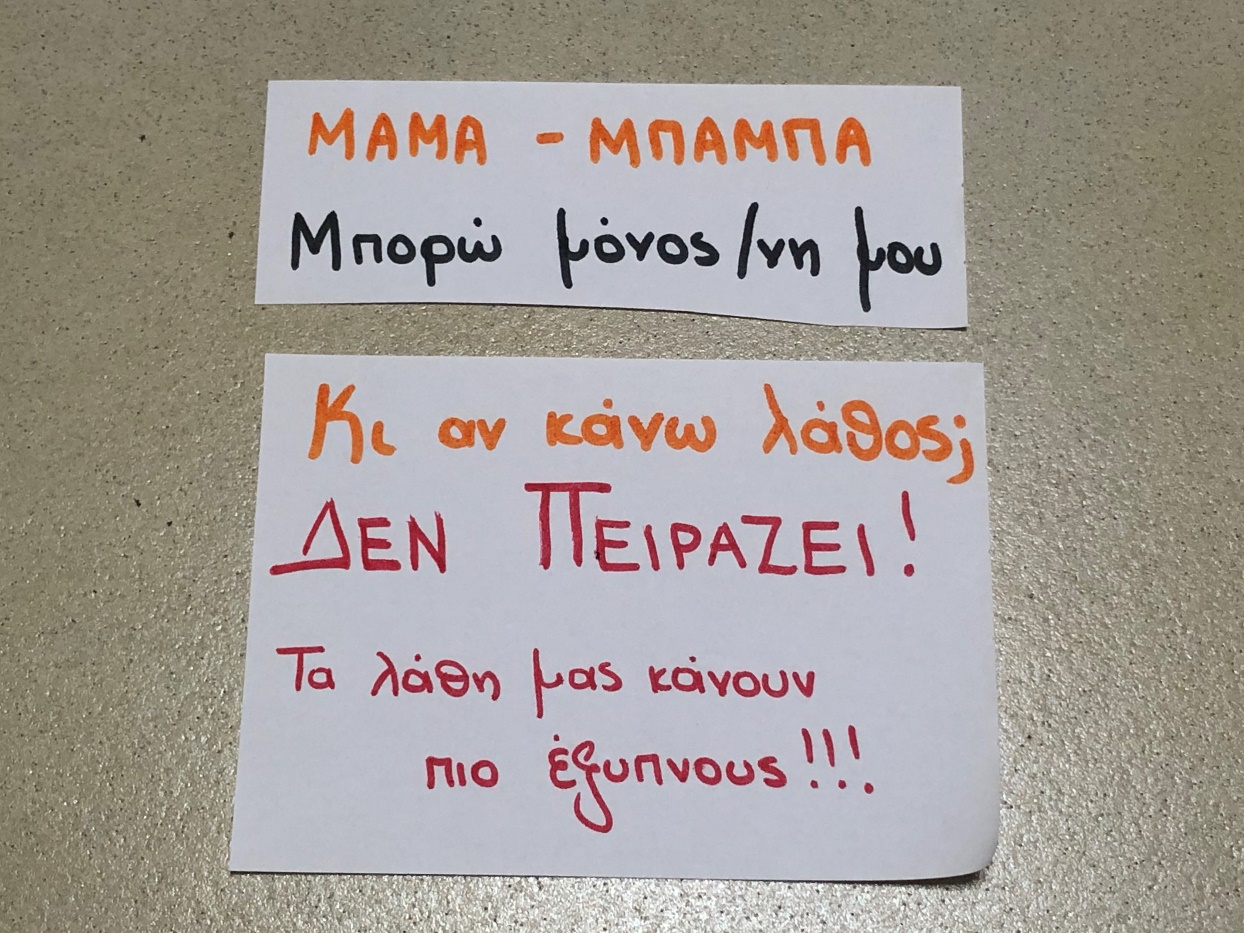 ΜΑΜΑ - ΜΠΑΜΠΑ
Μπορώ μόνος/νη μου
Κι αν κάνω λάθος;
ΔΕΝ ΠΕΙΡΑΖΕΙ!
Τα λάθη μας κάνουν
πιο έξυπνους!!!